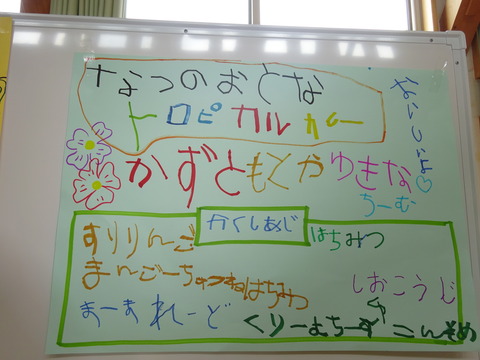 なつのおとな
トロピカルカレー
おいしいよ
かずと もとや ゆきな
ちーむ
かくしあじ
すりりんご
はちみつ
まんごーちゃつね はちみつ
しおこうじ
まーまれーど
くりーむちーず こんそめ